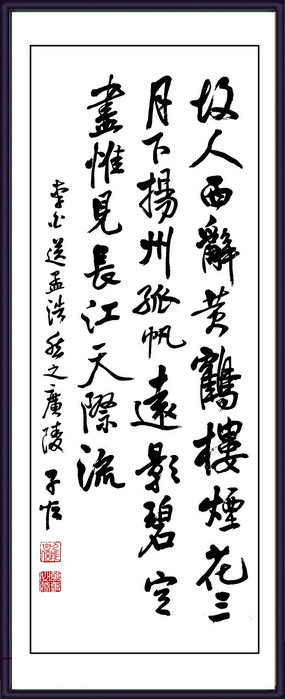 故人西辭黃鶴樓煙花三
月下揚州孤帆遠影碧空
盡惟見長江天際流
李白送孟浩然之廣陵 子恒